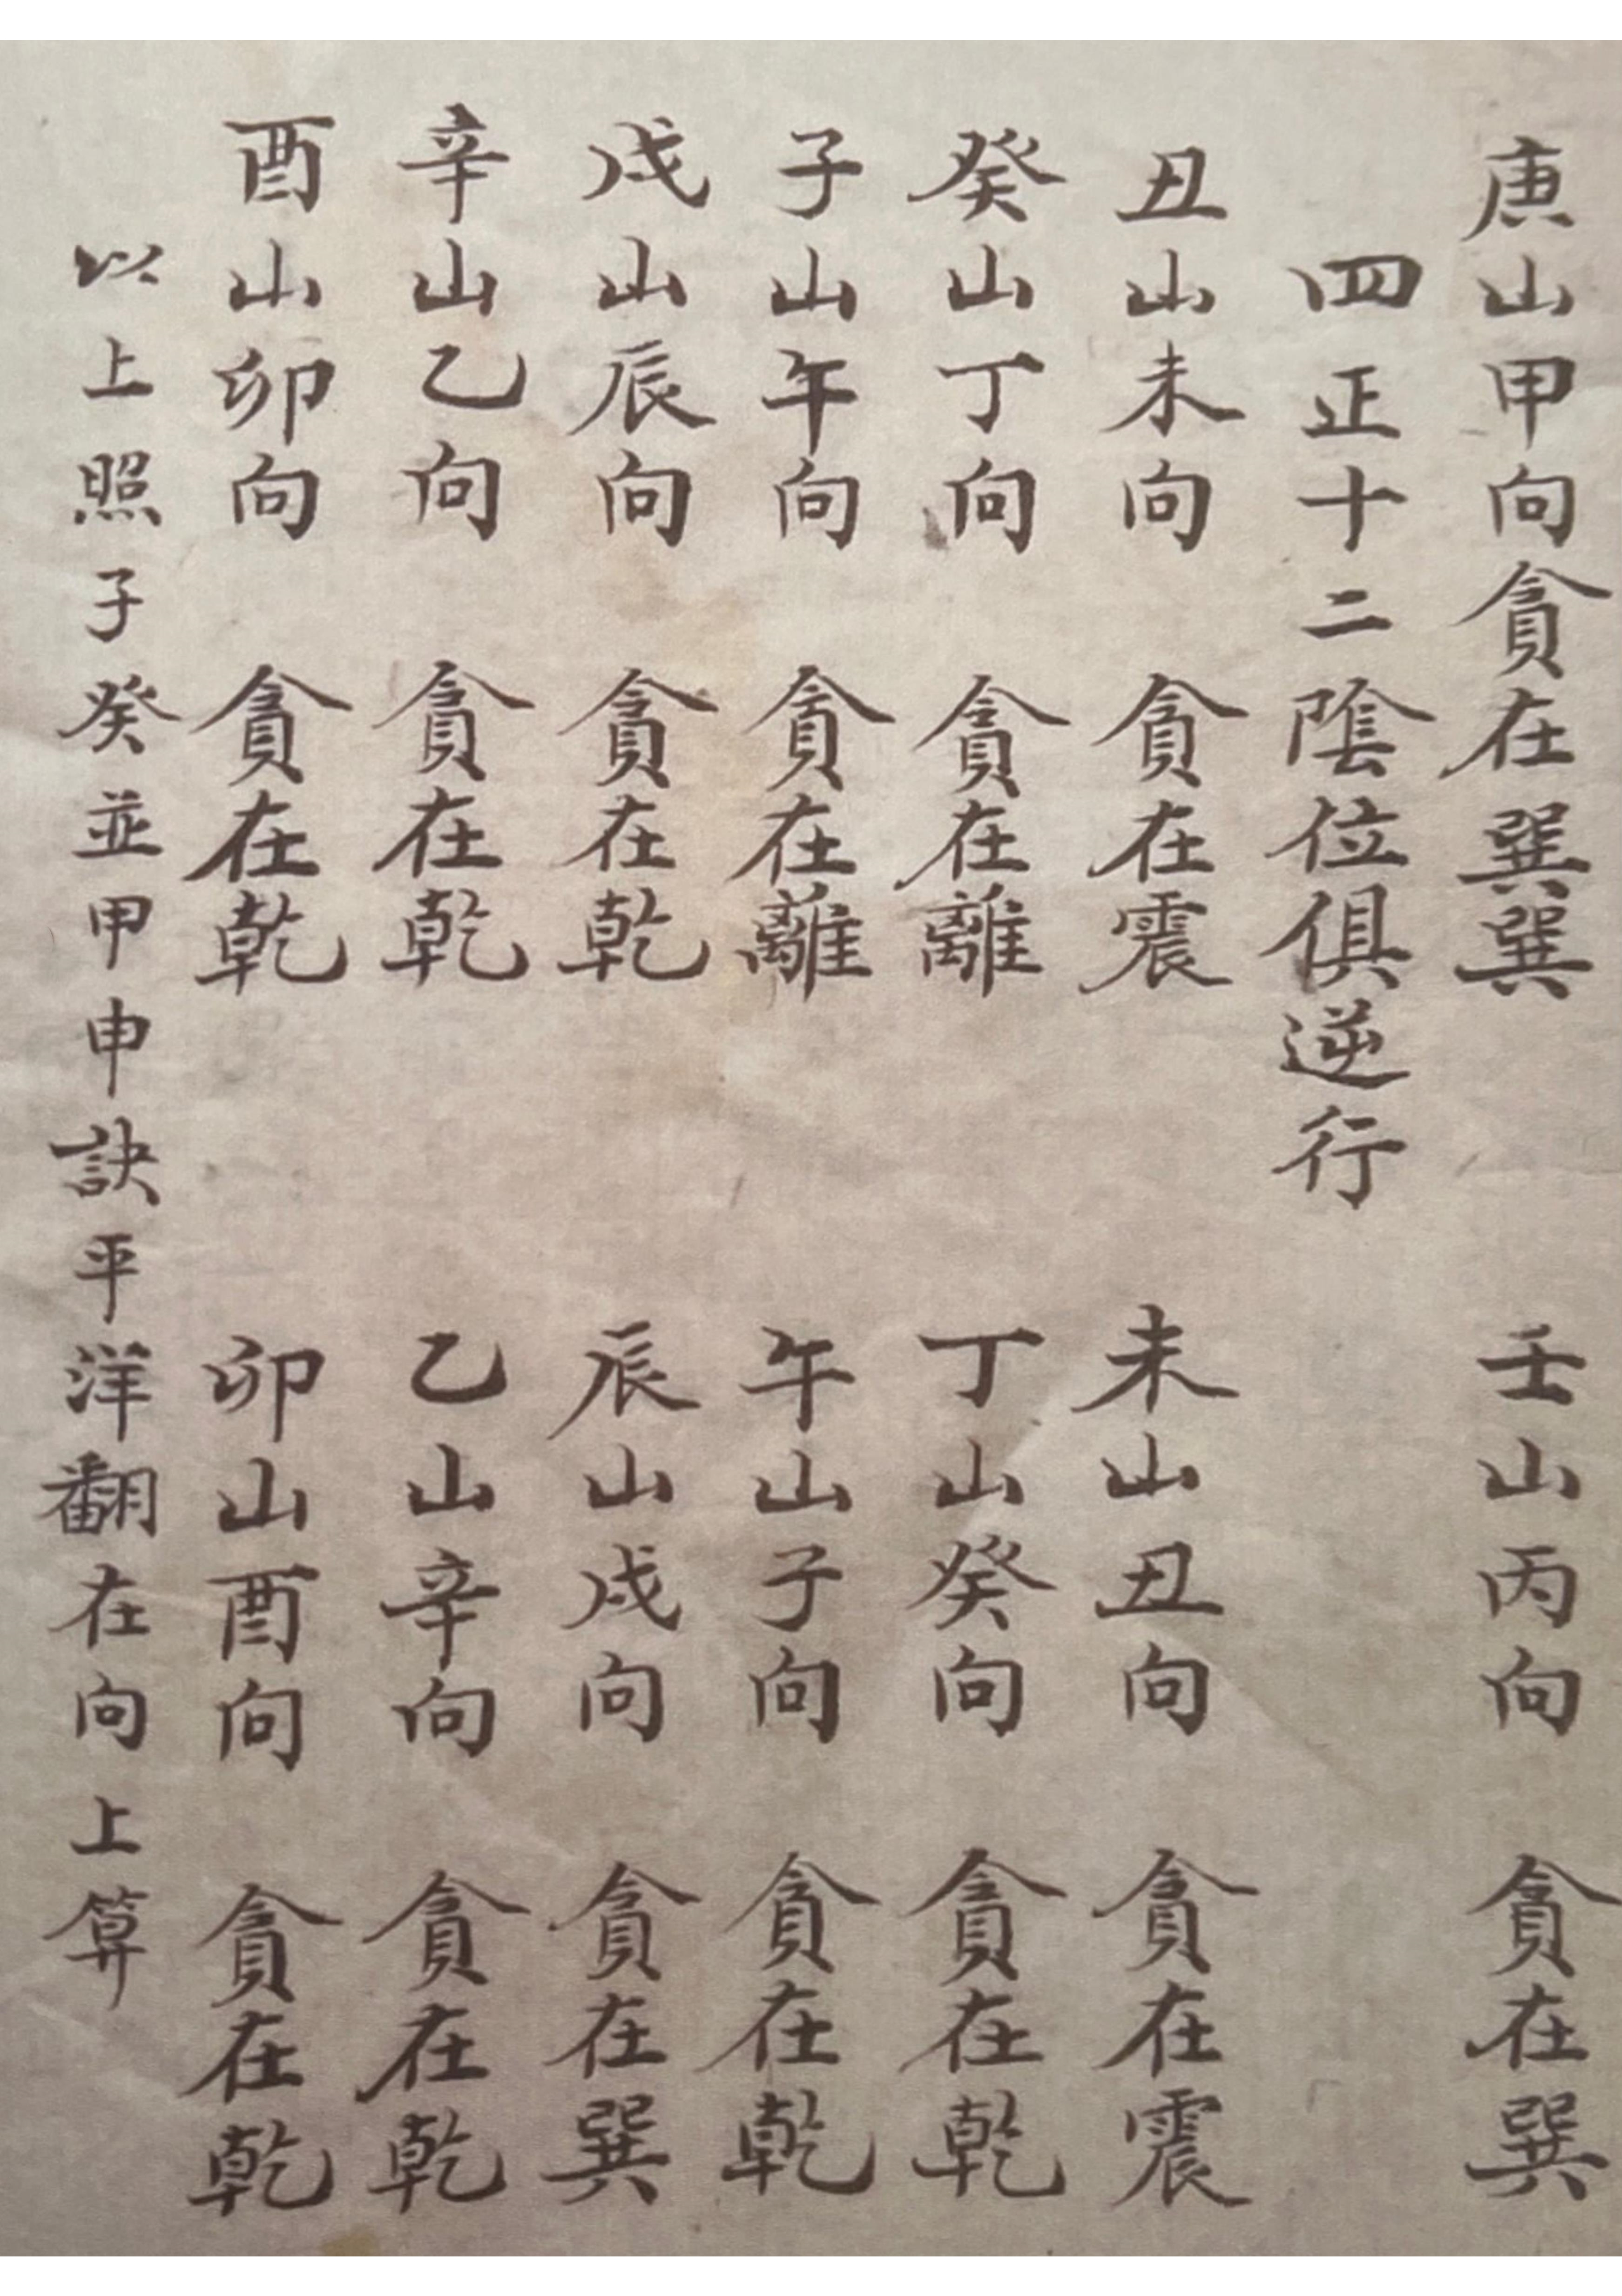 庚山甲向貪在巽巽　壬山丙向　貪在巽
四正十二陰位俱逆行
丑山未向　貪在震　未山丑向　貪在震
癸山丁向　貪在離　丁山癸向　貪在乾
子山午向　貪在離　午山子向　貪在乾
戌山辰向　貪在乾　辰山戌向　貪在巽
辛山乙向　貪在乾　乙山辛向　貪在乾
酉山卯向　貪在乾　卯山酉向　貪在乾
以上照子癸並甲申訣平洋翻在向上算